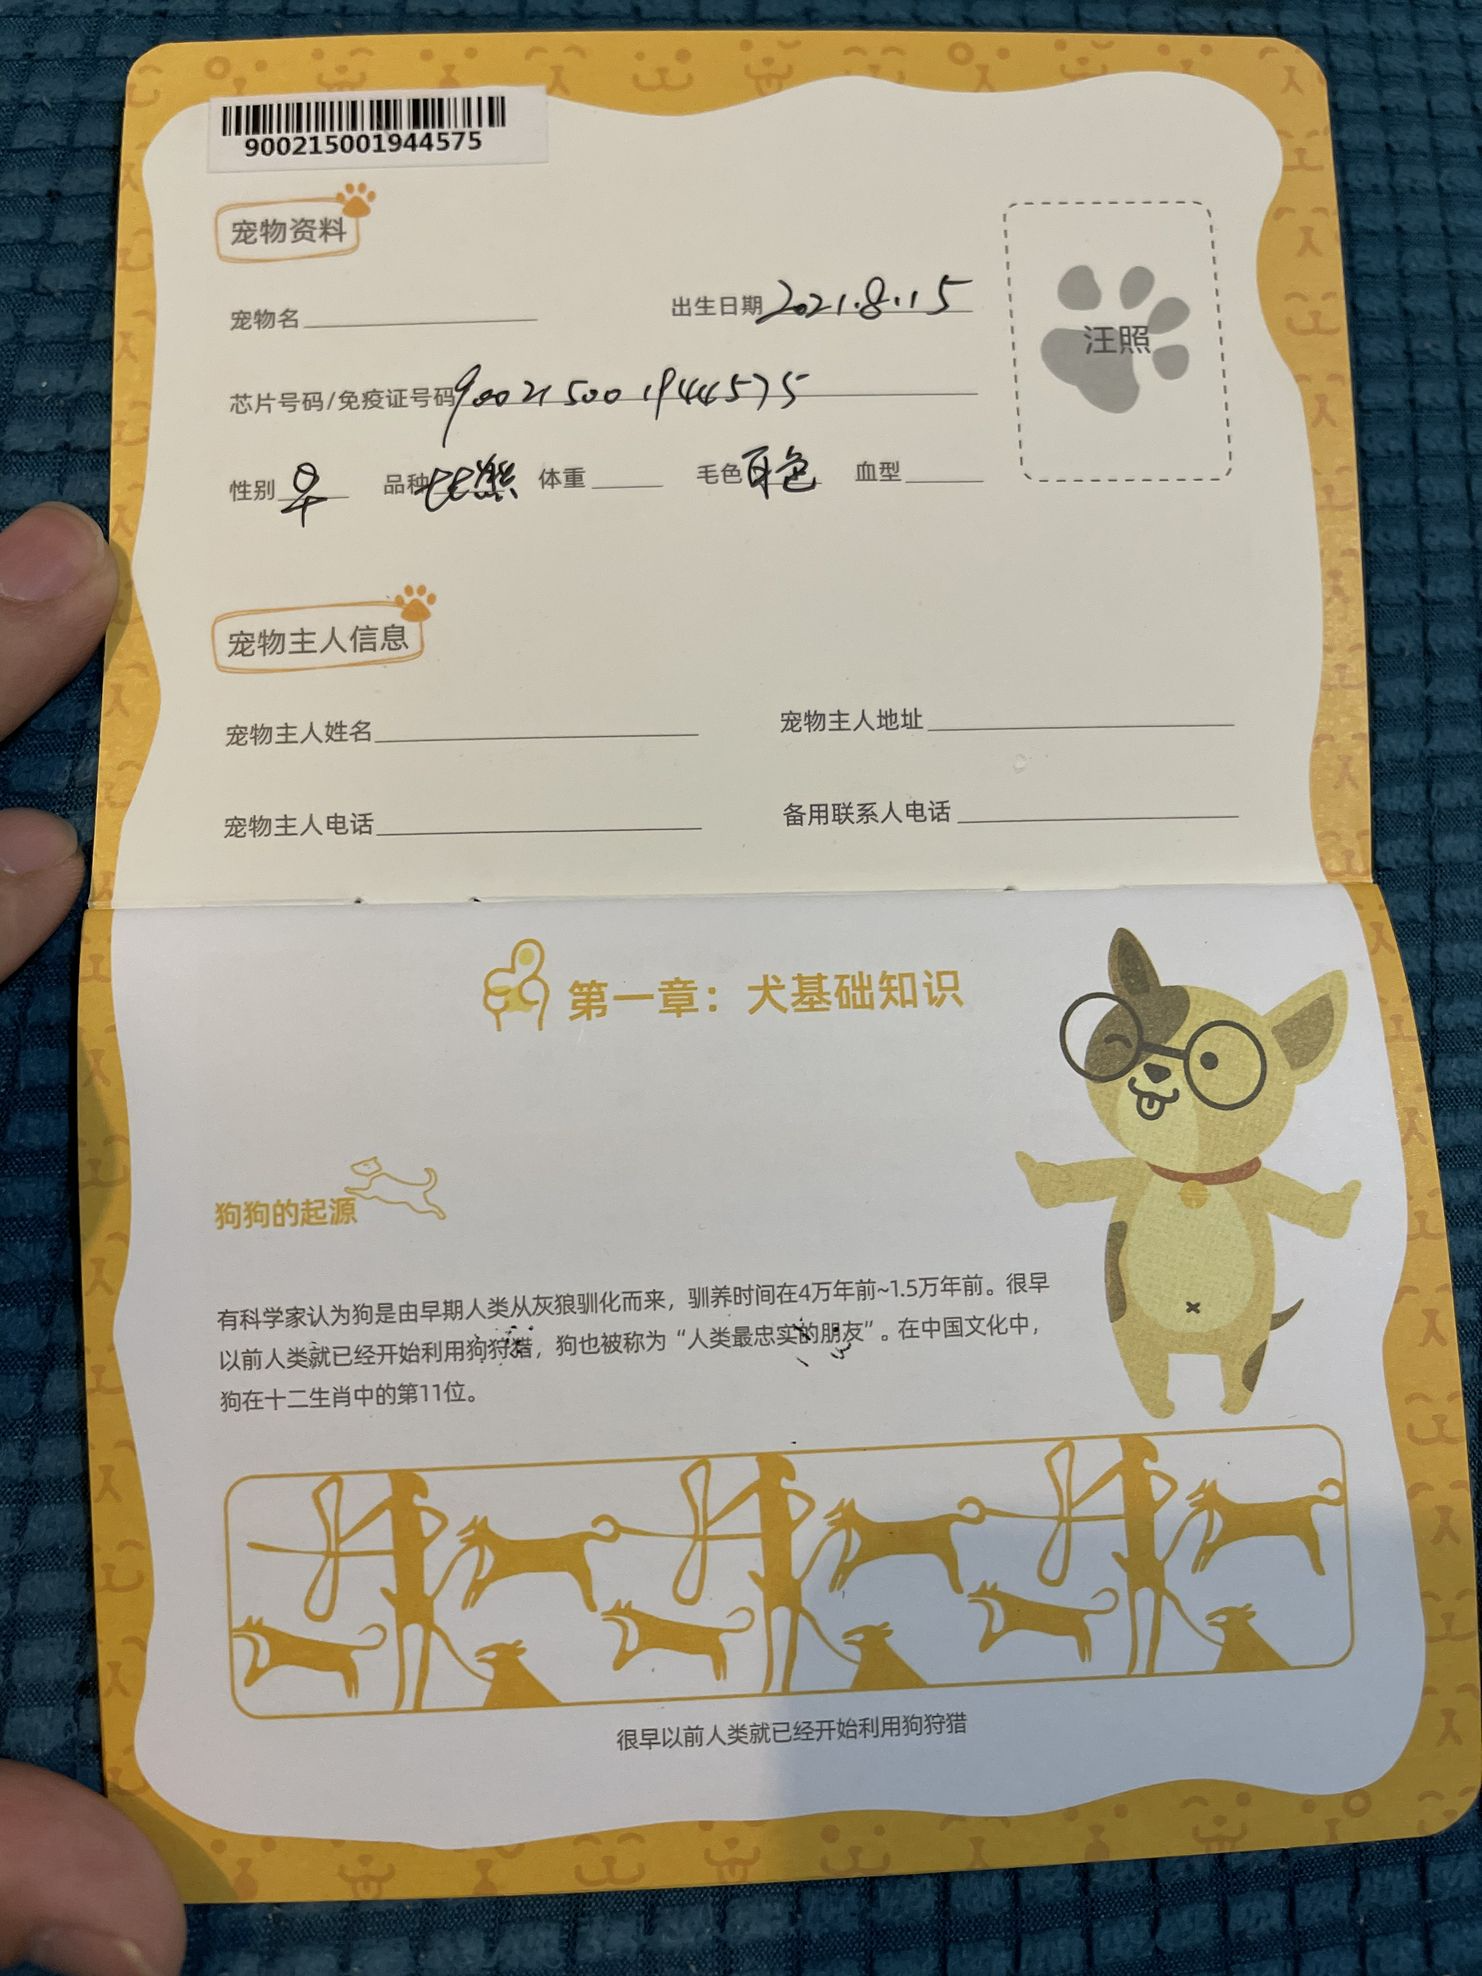 900215001944575
宠物资料
宠物名 出生日期 2021.8.15
汪照
芯片号码/免疫证号码 900215001944575
性别 ♀ 品种 比熊 体重 毛色 白色 血型
宠物主人信息
宠物主人姓名 宠物主人地址
宠物主人电话 备用联系人电话
第一章：犬基础知识
狗狗的起源
有科学家认为狗是由早期人类从灰狼驯化而来，驯养时间在4万年前~1.5万年前。很早
以前人类就已经开始利用狗狩猎，狗也被称为“人类最忠实的朋友”。在中国文化中，
狗在十二生肖中的第11位。
很早以前人类就已经开始利用狗狩猎